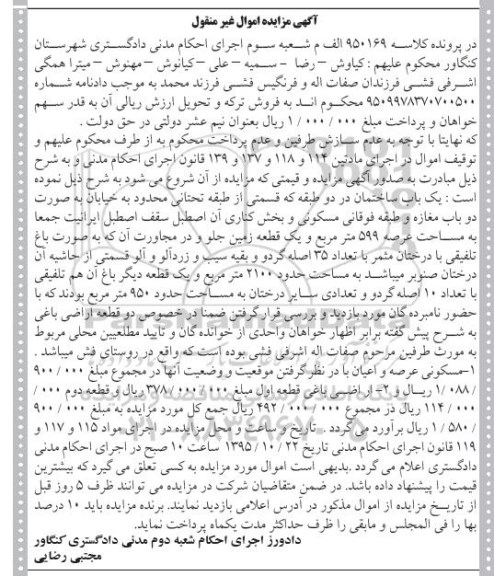 آگهی مزایده اموال غیر منقول
در پرونده کلاسه ۹۵۰۱۶۹ الف م شعبه سوم اجرای احکام مدنی دادگستری شهرستان
کنگاور محکوم علیهم : کیاوش – رضا – سمیه – علی – کیانوش – مهنوش – میترا همگی
اشرفی فشی فرزندان صفات اله و فرنگیس فشی فرزند محمد به موجب دادنامه شماره
۹۵۰۹۹۷۸۳۷۰۷۰۰۵۰۰ محکوم اند به فروش ترکه و تحویل ارزش ریالی آن به قدر سهم
خواهان و پرداخت مبلغ ۱/۰۰۰/۰۰۰ ریال بعنوان نیم عشر دولتی در حق دولت .
که نهایتا با توجه به عدم سازش طرفین و عدم پرداخت محکوم به از طرف محکوم علیهم و
توقیف اموال در اجرای مادتین ۱۱۴ و ۱۱۸ و ۱۳۷ و ۱۳۹ قانون اجرای احکام مدنی و به شرح
ذیل مبادرت به صدور آگهی مزایده و قیمتی که مزایده از آن شروع می شود به شرح ذیل نموده
است : یک باب ساختمان در دو طبقه که قسمتی از طبقه تحتانی محدود به خیابان به صورت
دو باب مغازه و طبقه فوقانی مسکونی و بخش کناری آن اصطبل سقف اصطبل ایرانیت جمعا
به مساحت عرصه ۵۹۹ متر مربع و یک قطعه زمین جلو و در مجاورت آن که به صورت باغ
تلفیقی با درختان مثمر با تعداد ۳۵ اصله گردو و بقیه سیب و زردآلو و آلو قسمتی از حاشیه آن
درختان صنوبر میباشد به مساحت حدود ۲۱۰۰ متر مربع و یک قطعه دیگر باغ آن هم تلفیقی
با تعداد ۱۰ اصله گردو و تعدادی سایر درختان به مساحت حدود ۹۵۰ متر مربع بودند که با
حضور نامبرده گان مورد بازدید و بررسی قرار گرفتن ضمنا در خصوص دو قطعه اراضی باغی
به شرح پیش گفته برابر اظهار خواهان واحدی از خوانده گان و تایید مطلعیین محلی مربوط
به مورث طرفین مرحوم صفات اله اشرفی فشی بوده است که واقع در روستای فش میباشد .
۱-مسکونی عرصه و اعیان با در نظر گرفتن موقعیت و وضعیت آنها در مجموع مبلغ ۹۰۰/۰۰۰
/۱/۰۸۸ ریال و ۲- اراضی باغی قطعه اول مبلغ ۳۷۸/۰۰۰/۰۰۰ ریال و قطعه دوم ۰۰۰/
۱۱۴/۰۰۰ ریال در مجموع ۴۹۲/۰۰۰/۰۰۰ ریال جمع کل مورد مزایده به مبلغ ۹۰۰/۰۰۰
/۱/۵۸۰ ریال برآورد می گردد . تاریخ و ساعت و محل مزایده در اجرای مواد ۱۱۵ و ۱۱۷ و
۱۱۹ قانون اجرای احکام مدنی تاریخ ۲۲/۱۰/۱۳۹۵ ساعت ۱۰ صبح در اجرای احکام مدنی
دادگستری اعلام می گردد .بدیهی است اموال مورد مزایده به کسی تعلق می گیرد که بیشترین
قیمت را پیشنهاد داده باشد. در ضمن متقاضیان شرکت در مزایده می توانند ظرف ۵ روز قبل
از تاریخ مزایده از اموال مذکور در آدرس اعلامی بازدید نمایند. برنده مزایده باید ۱۰ درصد
بها را فی المجلس و مابقی را ظرف حداکثر مدت یکماه پرداخت نماید.
دادورز اجرای احکام شعبه دوم مدنی دادگستری کنگاور
مجتبی رضایی